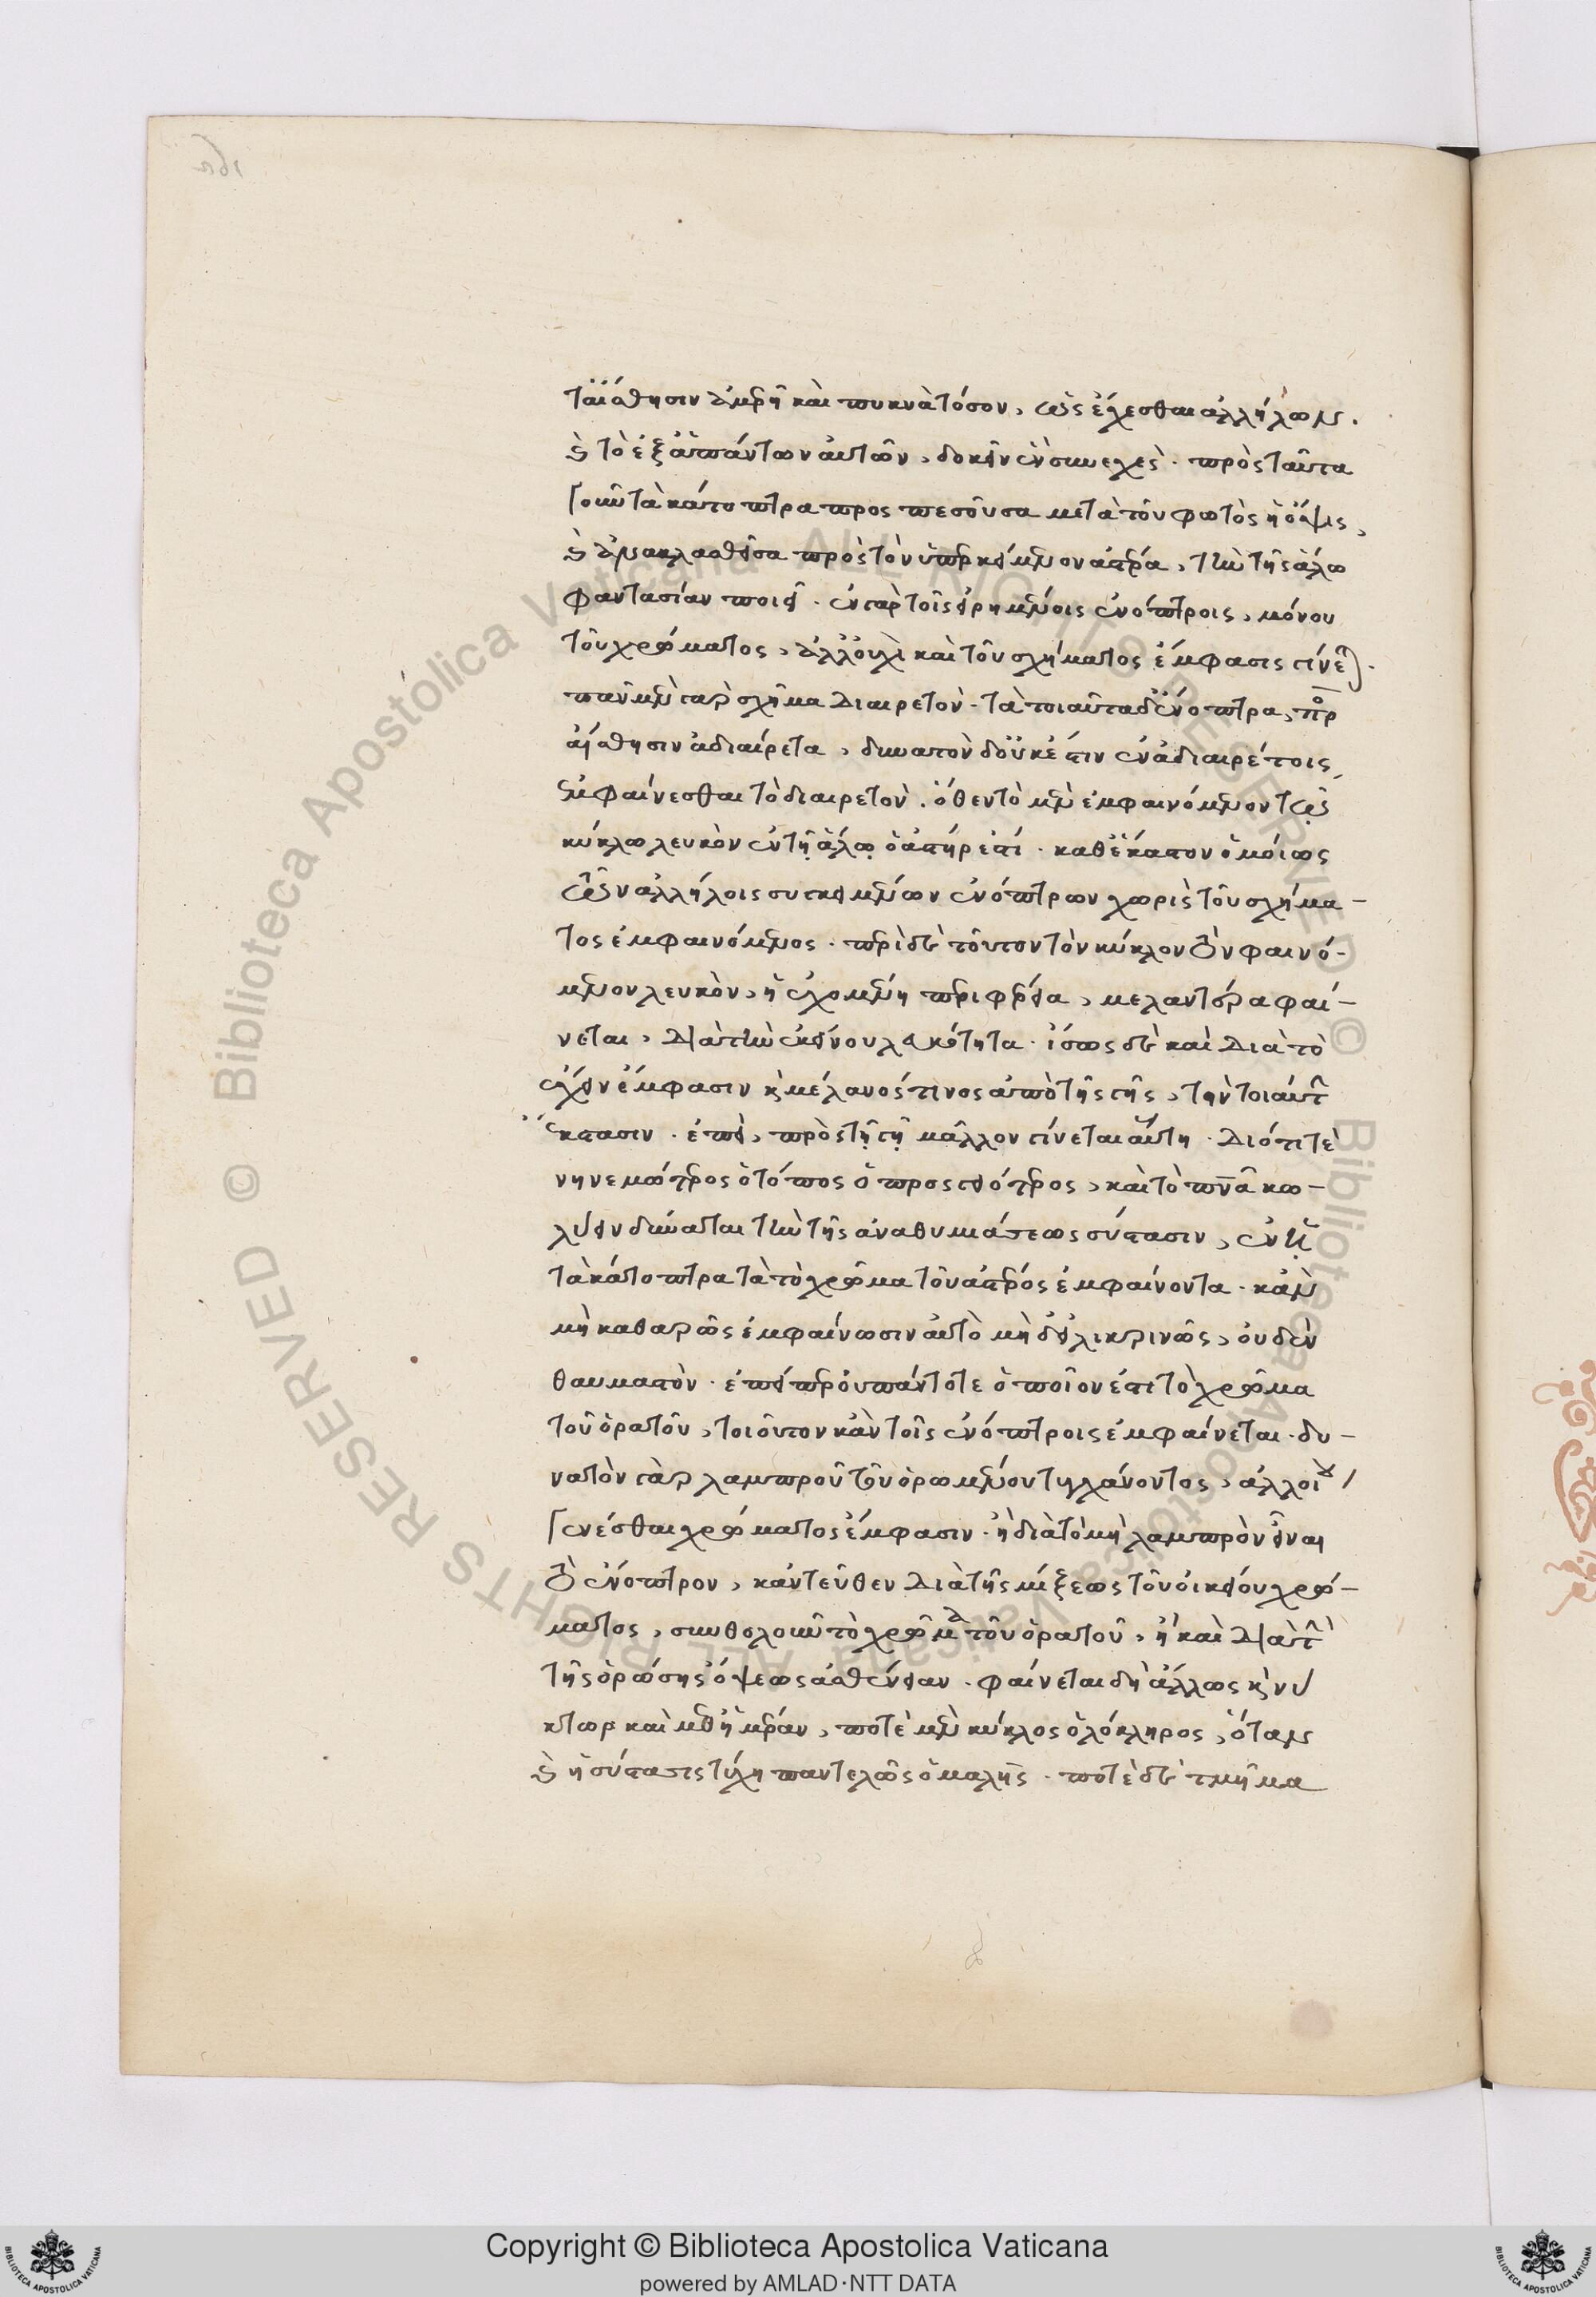 ταὶ αἴσθησιν ἀμερῆ καὶ πυκνὰ τόσον, ὡς ἔχεσθαι ἀλλήλων.
καὶ τὸ ἐξ ἁπάντων αὐτῶν, δοκεῖν ἓν συνεχές. πρὸς ταῦτα
γοῦν τὰ κάτοπτρα προσπεσοῦσα μετὰ τοῦ φωτὸς ἡ ὄψις,
καὶ ἀνακλασθεῖσα πρὸς τὸν ὑπερκείμενον ἀστέρα, τὴν τῆς ἅλω
φαντασίαν ποιεῖ. ἐν γὰρ τοῖς εἰρημένοις ἐνόπτροις, μόνου
τοῦ χρώματος, ἀλλ' οὐχὶ καὶ τοῦ σχήματος ἔμφασις γίνεται.
πᾶν μὲν γὰρ σχῆμα διαιρετόν. τὰ τοιαῦτα δ' ἔνοπτρα, πρὸς
αἴσθησιν ἀδιαίρετα, δυνατὸν δ' οὐκ ἔστιν ἐν ἀδιαιρέτοις,
ἐμφαίνεσθαι τὸ διαιρετόν. ὅθεν τὸ μὲν ἐμφαινόμενον ὡς
κύκλω λευκὸν ἐν τῇ ἅλῳ ὁ ἀστήρ ἐστι. καθ' ἕκαστον ὁμοίως
τῶν ἐν ἀλλήλοις συγκειμένων ἐνόπτρων χωρὶς τοῦ σχήμα-
τος ἐμφαινόμενος. περὶ δὲ τοῦτον τὸν κύκλον τὸν φαινό-
μενον λευκὸν, ἡ ἐχομένη περιφέρεια, μελαντέρα φαί-
νεται, διὰ τὴν ἐκείνου λευκότητα. ἴσως δὲ καὶ διὰ τὸ
ἔχειν ἔμφασιν καὶ μέλανός τινος ἀπὸ τῆς γῆς, τὴν τοιαύτην
ἔκστασιν. ἐπεὶ, πρὸς τῇ γῇ μᾶλλον γίνεται αὕτη. διότι τὲ
νηνεμώτερος ὁ τόπος ὁ προσγειότερος, καὶ τὸ πνεῦμα κω-
λύειν δύναται τὴν τῆς ἀναθυμιάσεως σύστασιν, ἐν ᾗ
τὰ κάτοπτρα τὰ τὸ χρῶμα τοῦ ἀστέρος ἐμφαίνοντα. κἂν
μὴ καθαρῶς ἐμφαίνωσιν αὐτὸ μηδ' εἰλικρινῶς, οὐδὲν
θαυμαστόν. ἐπείπερ οὐ πάντοτε ὁποῖον ἐστι τὸ χρῶμα
τοῦ ὁρατοῦ, τοιοῦτον κἀν τοῖς ἐνόπτροις ἐμφαίνεται. δυ-
νατὸν γὰρ λαμπροῦ τοῦ ὁρωμένου τυγχάνοντος, ἀλλοίου
γενέσθαι χρώματος ἔμφασιν. ἢ διὰ τὸ μὴ λαμπρὸν εἶναι
τὸ ἔνοπτρον, κἀντεῦθεν διὰ τῆς μίξεως τοῦ οἰκείου χρώ-
ματος, συνθολοῦν τὸ χρῶμα τοῦ ὁρατοῦ, ἢ καὶ διὰ τὴν
τῆς ὁρώσης ὄψεως ἀσθένειαν. φαίνεται δὴ ἅλλως καὶ νύ
κτωρ καὶ μεθ' ἡμέραν, ποτὲ μὲν κύκλος ὁλόκληρος, ὅταν
καὶ ἡ σύστασις τύχη παντελῶς ὁμαλής. ποτὲ δὲ τμῆμα